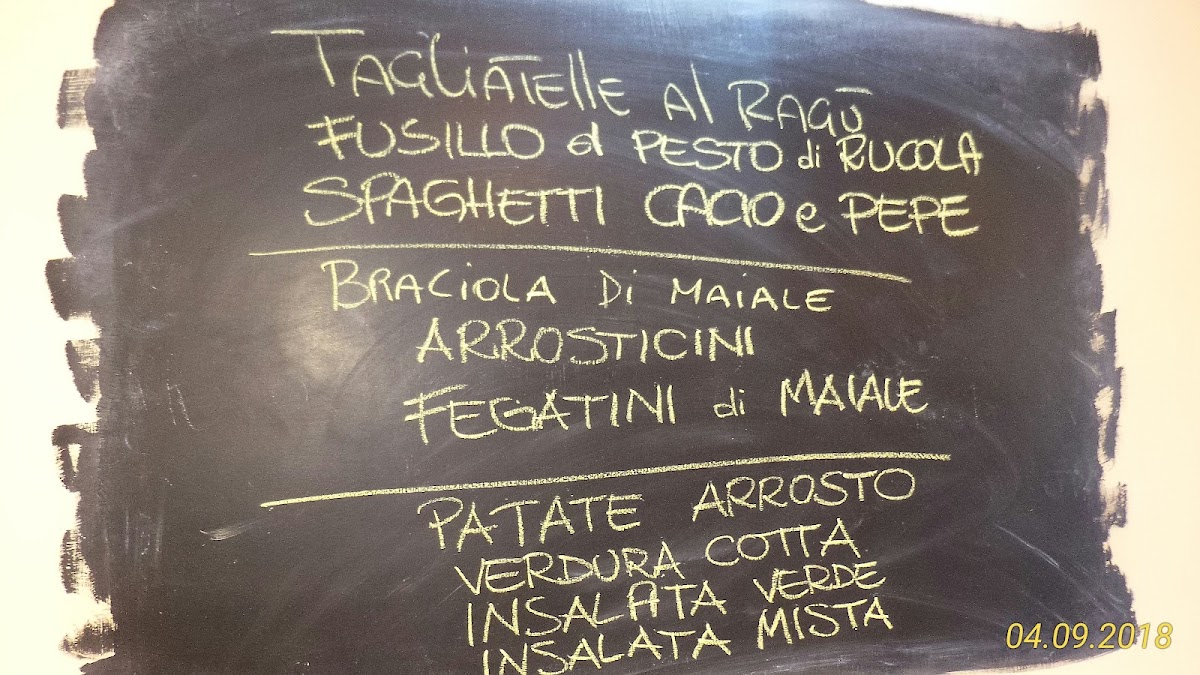 TAGLIATELLE Al RAGÙ
FUSILLO al PESTO di RUCOLA
SPAGHETTI CACIO e PEPE
BRACIOLA Di MAIALE
ARROSTICINI
FEGATINI di MAIALE
PATATE ARROSTO
VERDURA COTTA
INSALATA VERDE
INSALATA MISTA
04.09.2018